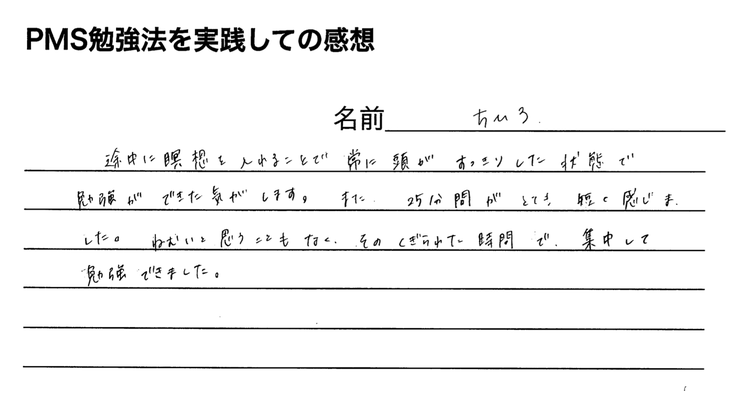 PMS勉強法を実践しての感想
名前 ちひろ.
途中に瞑想を入れることで 常に頭が すっきりした状態で
勉強が できた気がします。 また 25分間が とても 短く感じま
した。 ねむいと思うこともなく、そのくぎられた時間で、集中して
勉強できました。